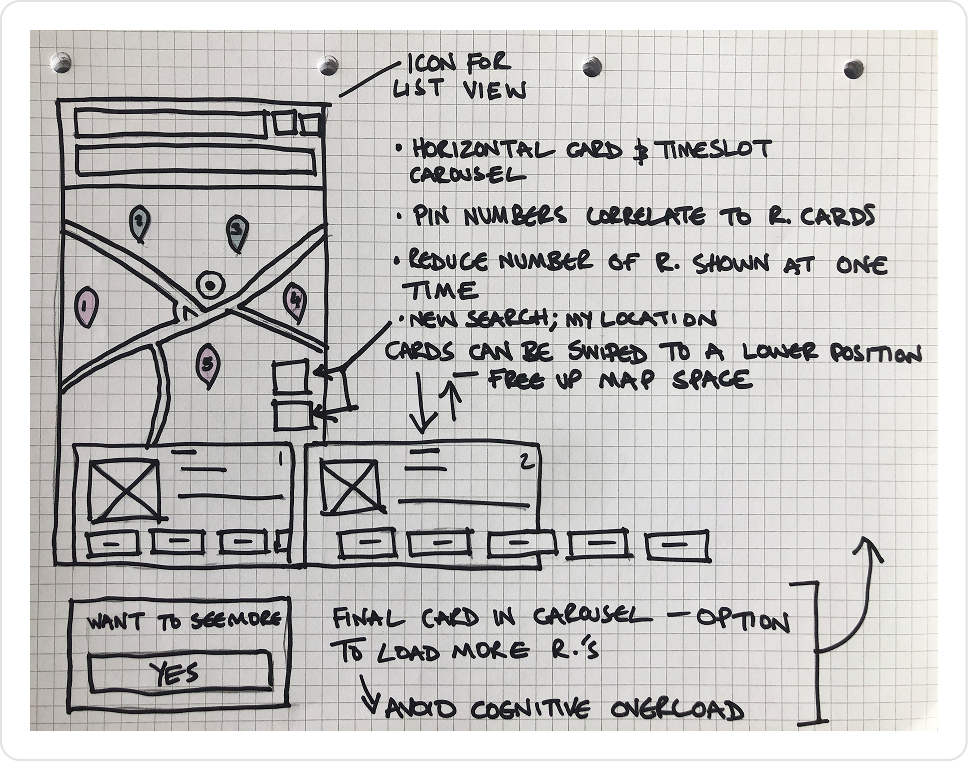 ICON FOR
LIST VIEW
• HORIZONTAL CARD & TIMESLOT
CAROUSEL
• PIN NUMBERS CORRELATE TO R. CARDS
• REDUCE NUMBER OF R. SHOWN AT ONE
TIME
• NEW SEARCH; MY LOCATION
CARDS CAN BE SWIPED TO A LOWER POSITION
– FREE UP MAP SPACE
1
4
5
1
2
WANT TO SEE MORE
YES
FINAL CARD IN CAROUSEL – OPTION
TO LOAD MORE R.'S
AVOID COGNITIVE OVERLOAD